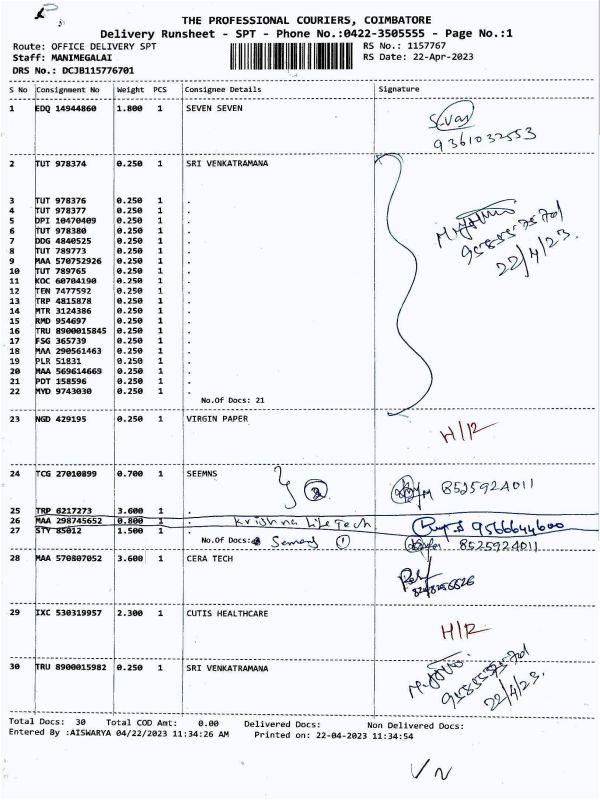 THE PROFESSIONAL COURIERS, COIMBATORE
Delivery Runsheet - SPT - Phone No.:0422-3505555 - Page No.:1
Route: OFFICE DELIVERY SPT RS No.: 1157767
Staff: MANIMEGALAI RS Date: 22-Apr-2023
DRS No.: DCJB115776701
S No Consignment No Weight PCS Consignee Details Signature
1 EDQ 14944860 1.800 1 SEVEN SEVEN
9361032553
2 TUT 978374 0.250 1 SRI VENKATRAMANA
3 TUT 978376 0.250 1 .
4 TUT 978377 0.250 1 .
5 DPI 10470409 0.250 1 .
6 TUT 978380 0.250 1 .
7 DDG 4840525 0.250 1 .
8 TUT 789773 0.250 1 .
9 MAA 570752926 0.250 1 .
22/4/23.
10 TUT 789765 0.250 1 .
11 KOC 60704190 0.250 1 .
12 TEN 7477592 0.250 1 .
13 TRP 4815878 0.250 1 .
14 MTR 3124386 0.250 1 .
15 RMD 954697 0.250 1 .
16 TRU 8900015845 0.250 1 .
17 FSG 365739 0.250 1 .
18 MAA 290561463 0.250 1 .
19 PLR 51831 0.250 1 .
20 MAA 569614669 0.250 1 .
21 PDT 158596 0.250 1 .
22 MYD 9743030 0.250 1 .
No.Of Docs: 21
23 NGD 429195 0.250 1 VIRGIN PAPER H/R
24 TCG 27010899 0.700 1 SEEMNS
2 8525924011
25 TRP 6217273 3.600 1 .
26 MAA 298745652 0.800 1 . Krishna LifeTech 9566644600
27 STY 85012 1.500 1 .
No.Of Docs: Semens 1 8525924011
28 MAA 570807052 3.600 1 CERA TECH
29 IXC 530319957 2.300 1 CUTIS HEALTHCARE
H/R
30 TRU 8900015982 0.250 1 SRI VENKATRAMANA
22/4/23.
Total Docs: 30 Total COD Amt: 0.00 Delivered Docs: Non Delivered Docs:
Entered By :AISWARYA 04/22/2023 11:34:26 AM Printed on: 22-04-2023 11:34:54